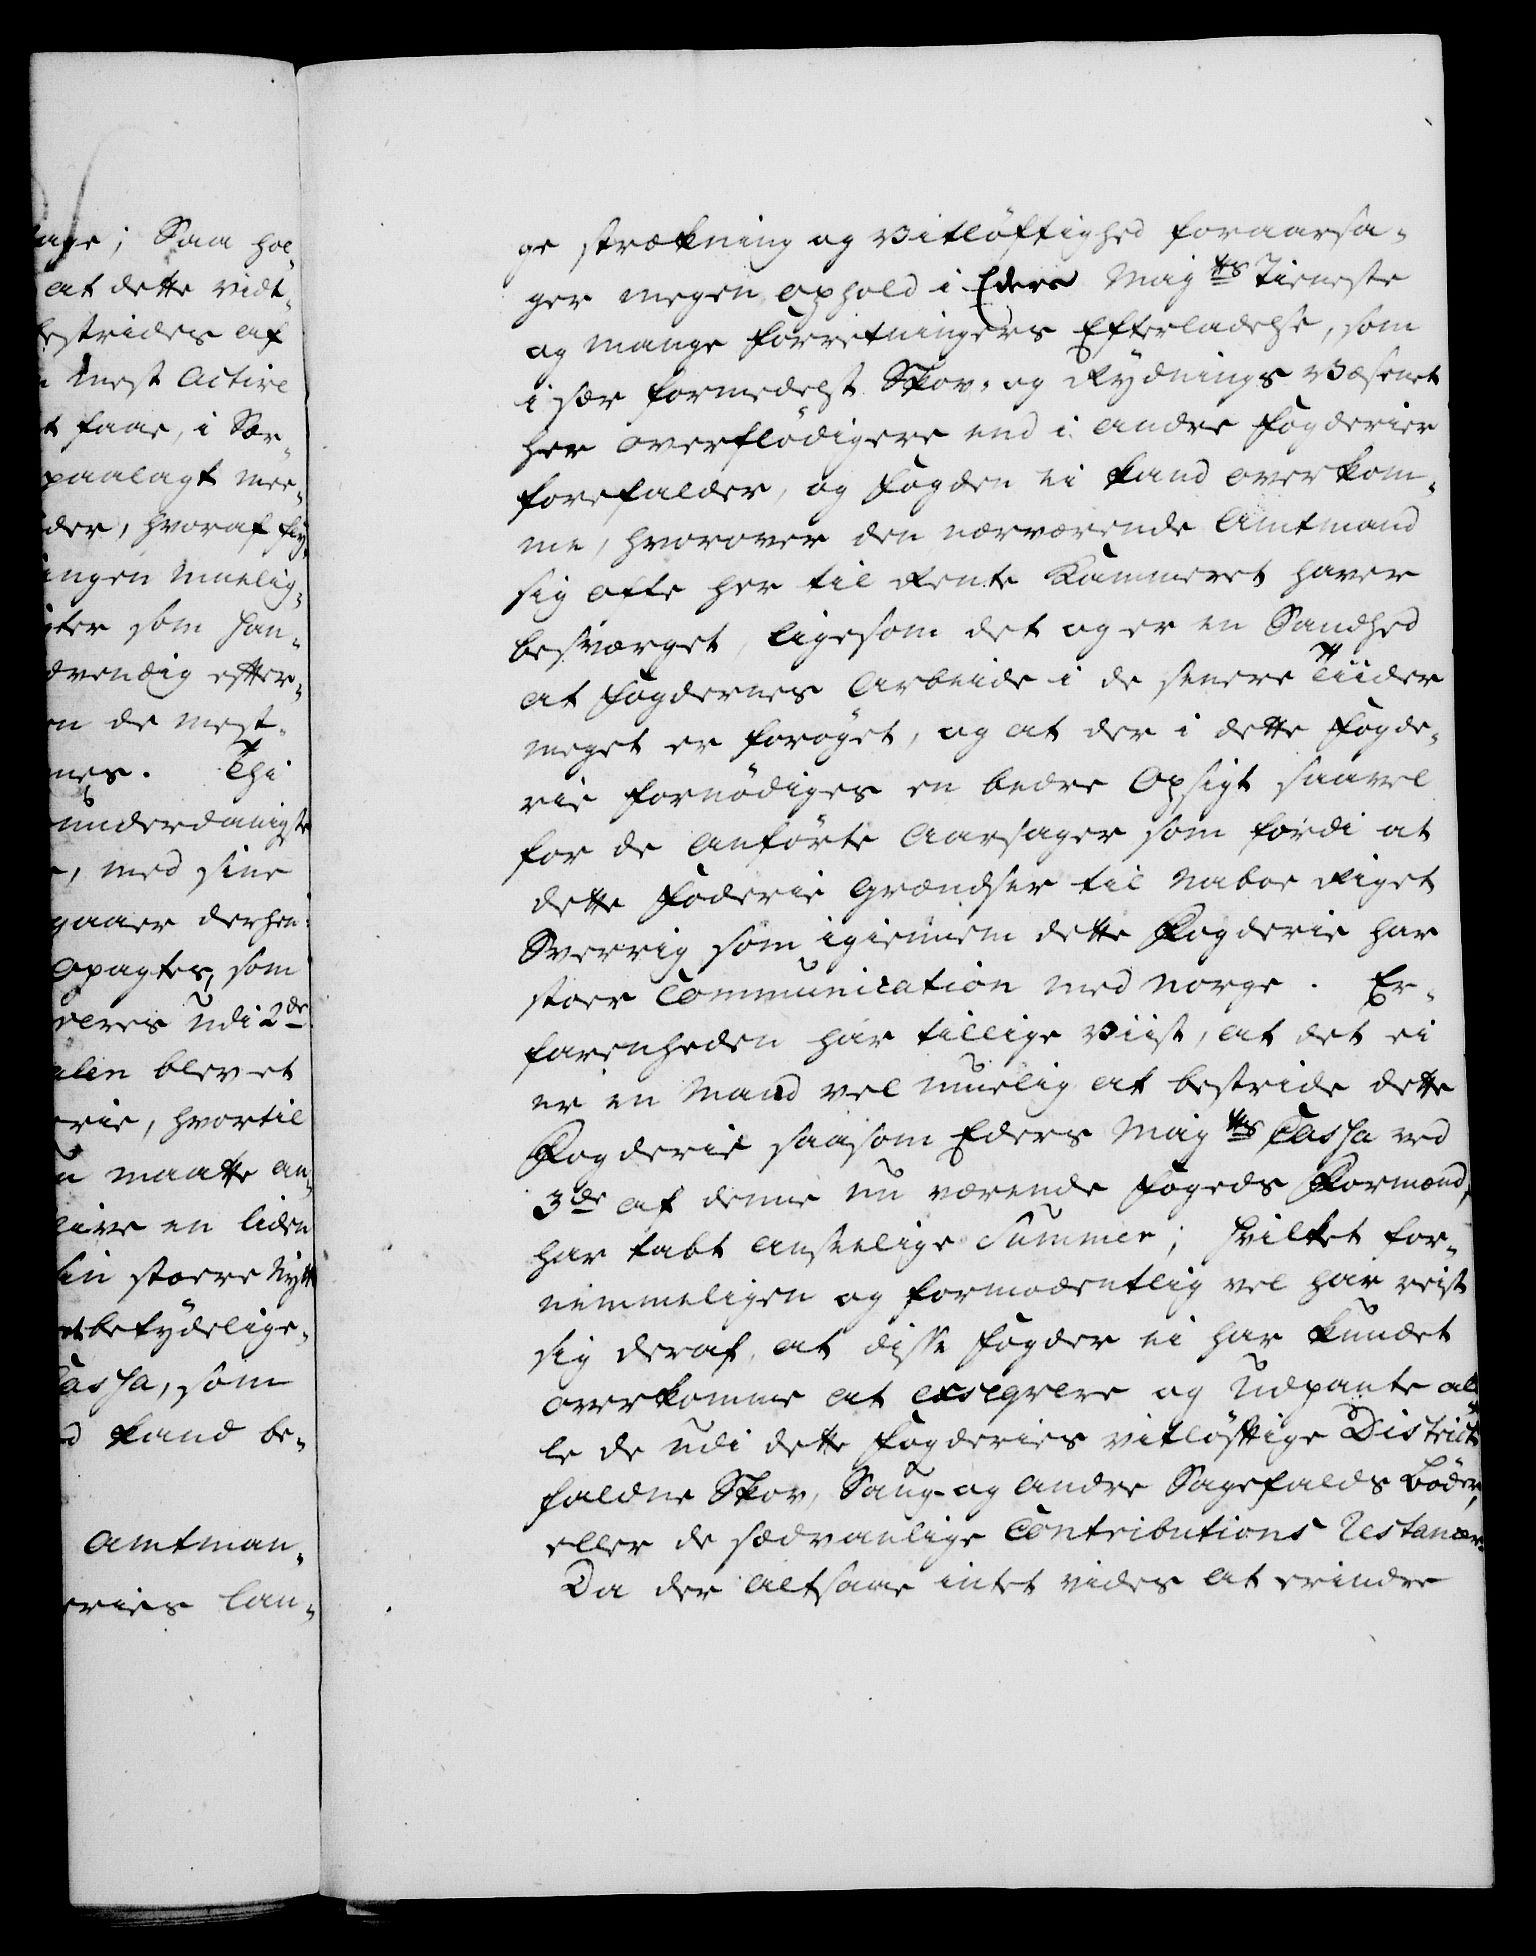 age; Saa hol¬
at dette vidt¬
bestrides af
mest active
t faae, i Sær¬
paalagt mee¬
der, hvoraf fly¬
ingen muelig¬
gter som han¬
dvendig efter¬
en de mest¬
nes. Thi
underdanigste
, med sine
gaaer derhen
Opagter, som
veres udi 2de
alen blevet
erie, hvortil
n maatte an¬
live en liden
sin større Nytte
betydelige¬
Cassa, som
d kand be¬
Amtman¬
eries lan¬
ge strækning og vitløftighed foraarsa¬
ger megen ophold i Eders Mayts Tieneste
og mange Forretningers Efterladelse, som
i sær formedelst Skov- og Rydnings Væsenet
her overflødigere end i andre Fogderier
forefalder, og Fogden ei kand overkom¬
me, hvorover den nærværende Amtmand
sig ofte her til Rente Kammeret haver
besværget, ligesom det og er en Sandhed
at Fogdernes Arbeide i de senere Tiider
meget er forøget, og at der i dette Fogde¬
rie fornødiges en bedre Opsigt saavel
for de anførte Aarsager som fordi at
dette Foderie Grændser til Naboe Riget
Sverrig som igiennem dette Fogderie har
stoer Communication med Norge. Er¬
farenheden har tillige viist, at det ei
er en Mand vel muelig at bestride dette
Fogderie saasom Eders Mayts Cassa ved
3de af denne nu værende Fogeds Formænd,
har tabt anseelige Summer; hvilket for¬
nemmeligen og formodentlig vel har reist
sig deraf, at disse Fogder ei har kundet
overkomme at exseqvere og Udpante al¬
le de udi dette Fogderies vitløftige District
faldne Skov, Saug- og andre Sagefalds Bøder,
eller de sædvanlige Contributions Restancer.
Da der altsaa intet vides at erindre